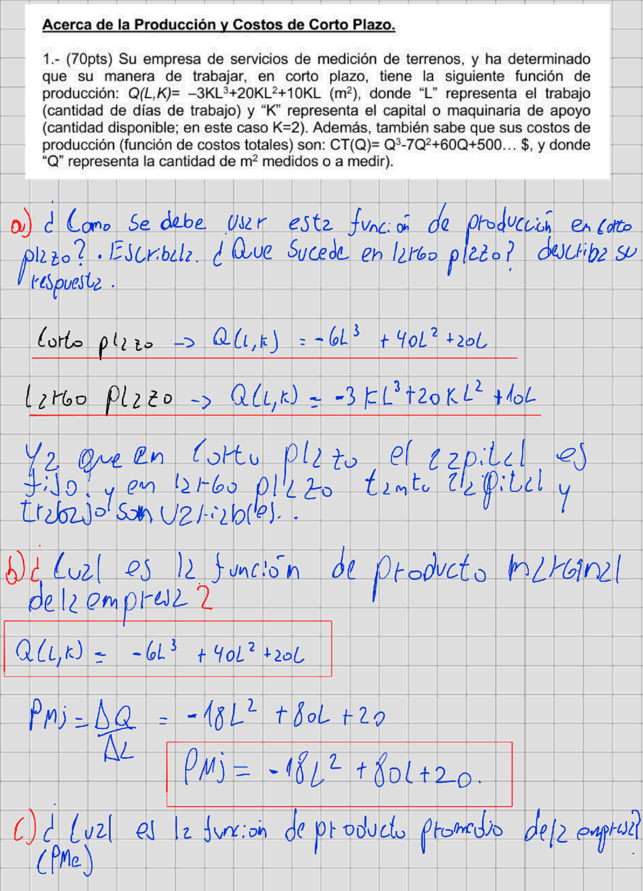 Acerca de la Producción y Costos de Corto Plazo.
1.- (70pts) Su empresa de servicios de medición de terrenos, y ha determinado
que su manera de trabajar, en corto plazo, tiene la siguiente función de
producción: Q(L,K)= –3KL³+20KL²+10KL (m²), donde "L" representa el trabajo
(cantidad de días de trabajo) y "K" representa el capital o maquinaria de apoyo
(cantidad disponible; en este caso K=2). Además, también sabe que sus costos de
producción (función de costos totales) son: CT(Q)= Q³-7Q²+60Q+500... $, y donde
"Q" representa la cantidad de m² medidos o a medir).
a) ¿Como se debe usar esta función de producción en corto
plazo?. Escribala. ¿Que sucede en largo plazo? describa su
respuesta.
Corto plazo → Q(L,K) = -6L³ + 40L² +20L
Largo Plazo → Q(L,K) = -3KL³+20KL² +10L
Ya que en Corto plazo el capital es
fijo. y en largo plazo tanto capital y
trabajo son variables..
b) ¿Cual es la función de producto marginal
de la empresa?
Q(L,K) = -6L³ + 40L² +20L
PMj = ΔQ = -18L² + 80L + 20
ΔL
PMj = -18L² + 80L + 20.
c) ¿Cual es la función de producto promedio de la empresa?
(PMe)